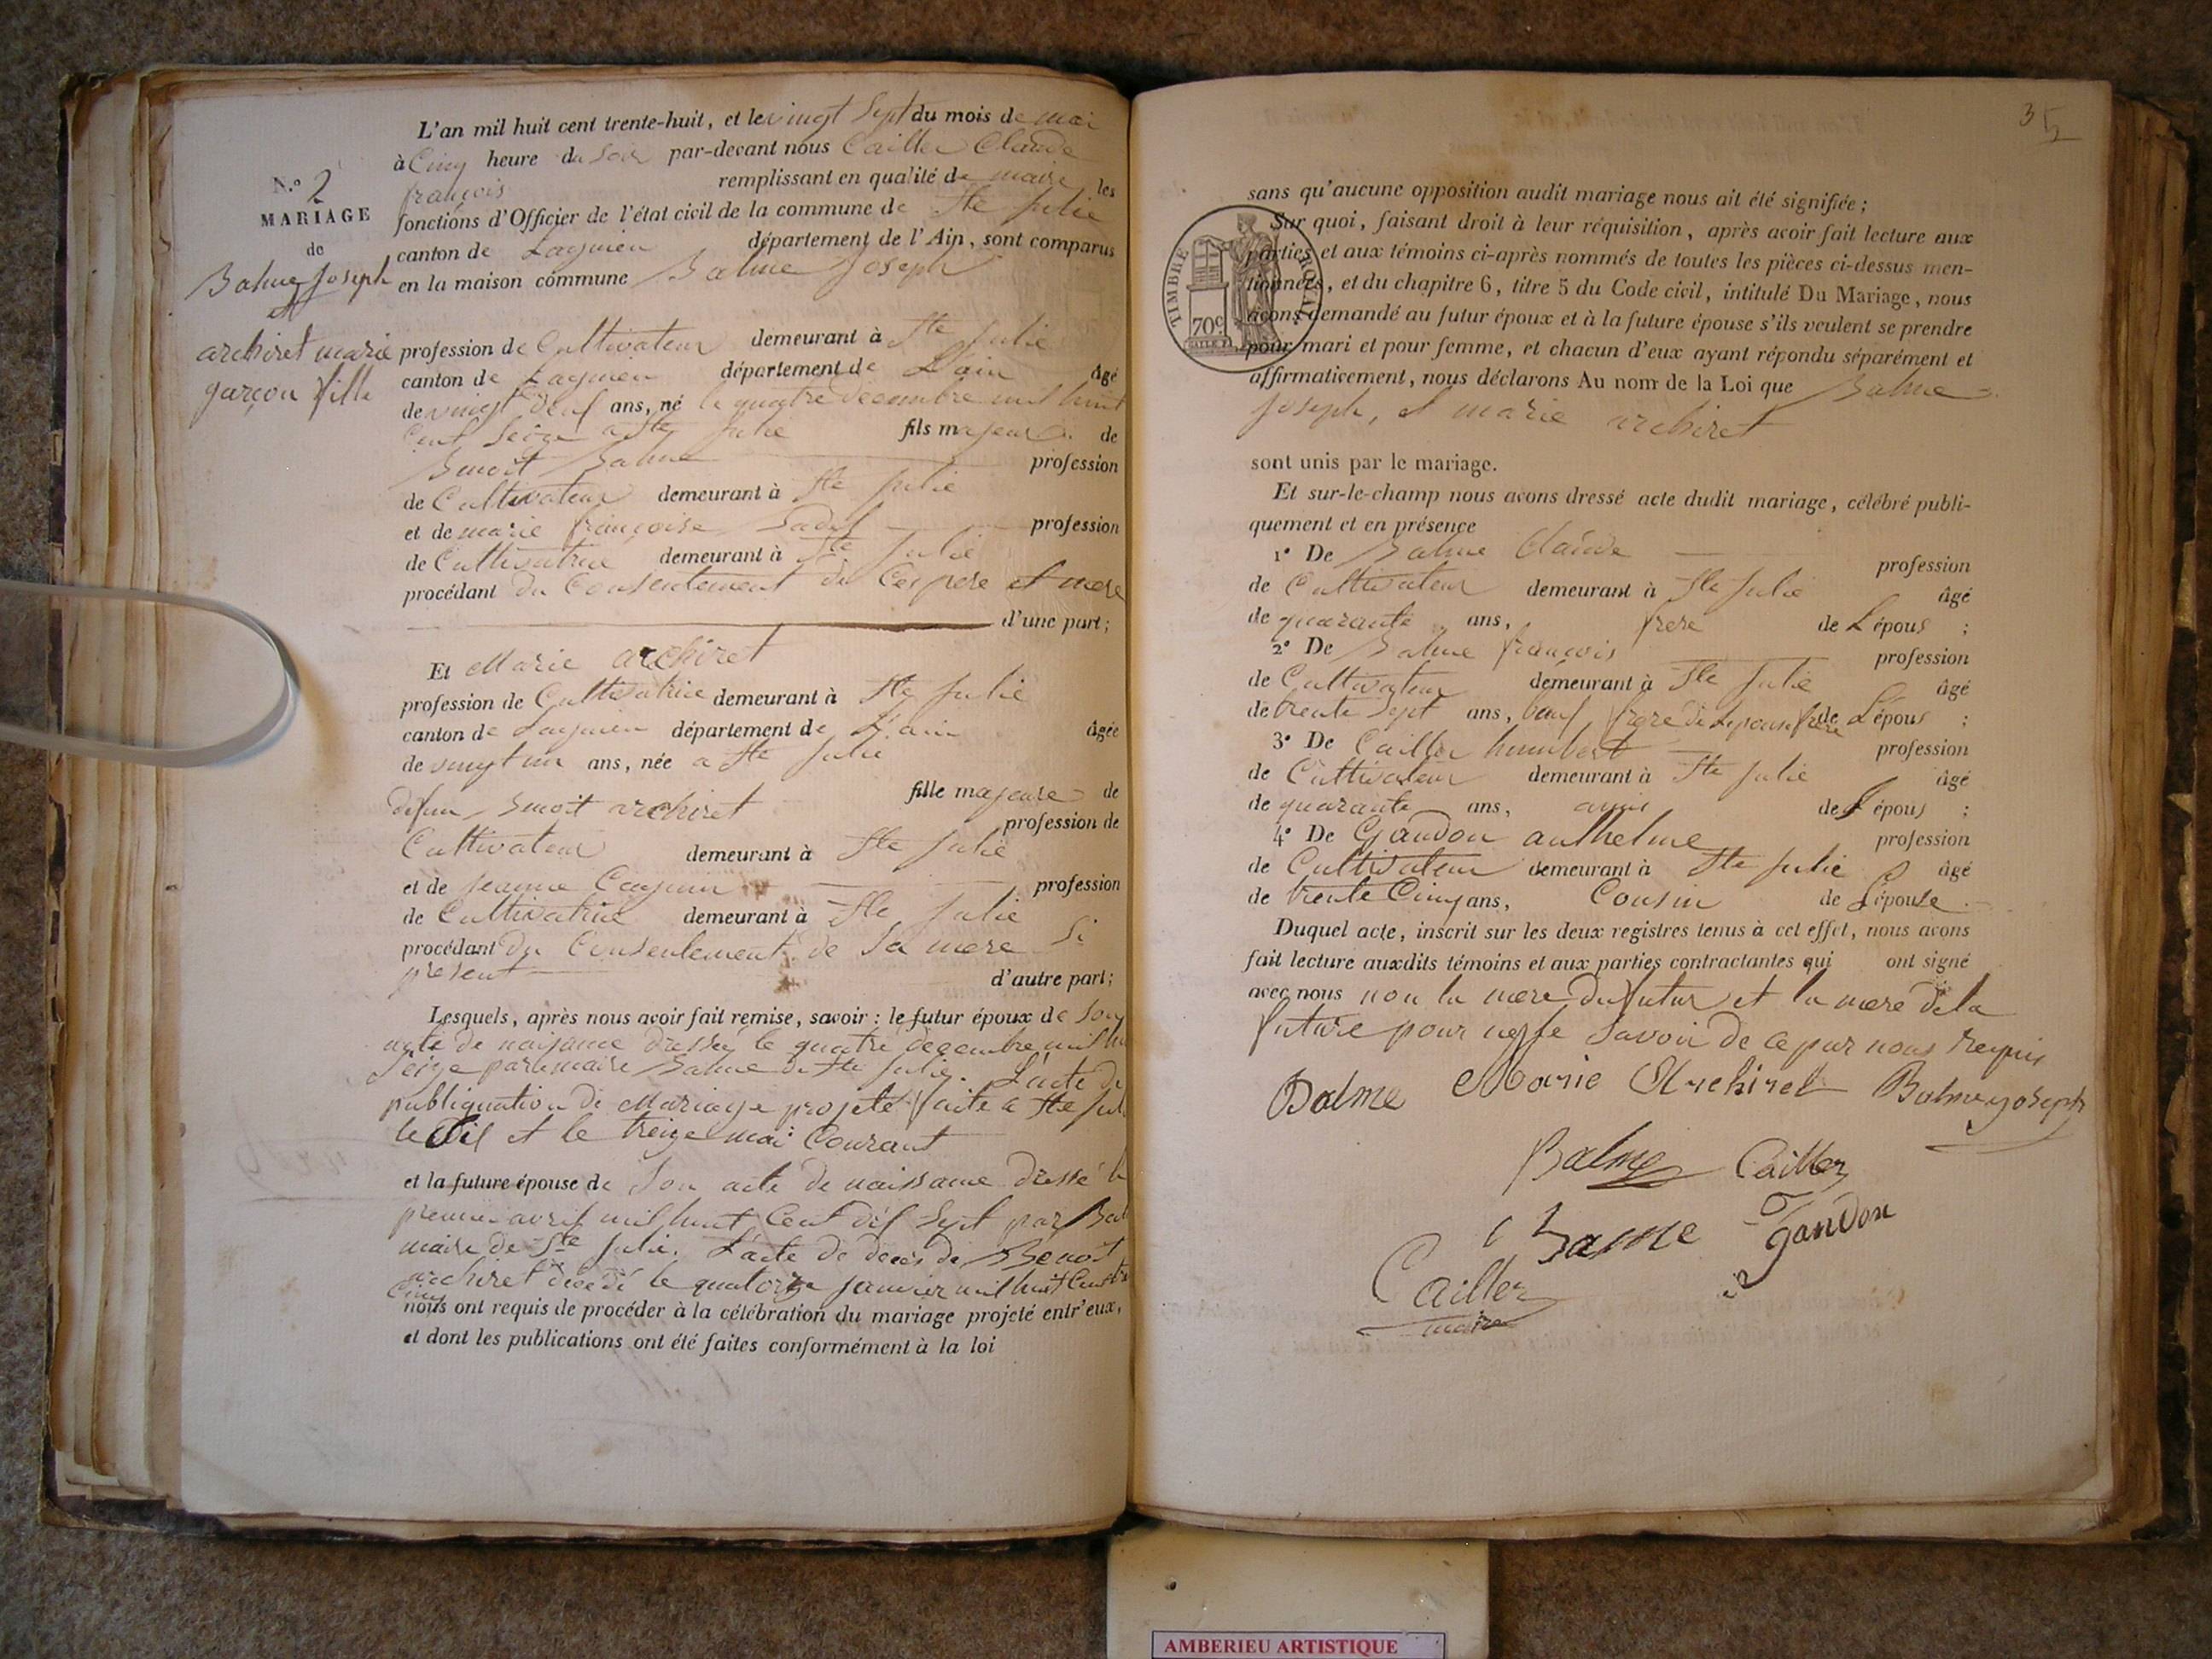 L'an mil huit cent trente-huit, et le vingt Sept du mois de mai
à Cinq heure du Soir par-devant nous Cailler Claude
françois remplissant en qualité de maire les
fonctions d'Officier de l'état civil de la commune de Ste Julie
canton de Lagnieu département de l'Ain, sont comparus
en la maison commune Balme Joseph
N.º 2
MARIAGE
de
Balme Joseph
et
archiret marie
garçon fille
profession de Cultivateur demeurant à Ste Julie
canton de Lagnieu département de L'ain âgé
de vingt deuf ans, né le quatre decembre mil huit
Cent Seize a Ste Julie fils majeur de
Benoit Balme profession
de Cultivateur demeurant à Ste Julie
et de marie françoise profession
de Cultivatrice demeurant à Ste Julie
procédant du Consentement de Ces pere et mere
d'une part;
Et Marie archiret
profession de Cultivatrice demeurant à Ste Julie
canton de Lagnieu département de L'ain âgée
de vingt un ans, née a Ste Julie
fille majeure de
defun Benoit archiret profession de
Cultivateur demeurant à Ste Julie
et de Jeanne profession
de Cultivatrice demeurant à Ste Julie
procédant du Consentement de Sa mere Si
present d'autre part;
Lesquels, après nous avoir fait remise, savoir: le futur époux de Son
acte de naisance dressé le quatre decembre mil
Seize par maire Balme de Ste Julie. L'acte de
publiquation de Mariage projeté faite a Ste Jul
le Dis et le treize mai Courant
et la future épouse de Son acte de naissance dressé le
premier avril mil huit Cent dis Sept par Bal
maire de Ste Julie. L'acte de deces de Benoit
archiret décédé le quatorze janvier mil huit Cent
Cinq
nous ont requis de procéder à la célébration du mariage projeté entr'eux,
et dont les publications ont été faites conformément à la loi
35
sans qu'aucune opposition audit mariage nous ait été signifiée;
Sur quoi, faisant droit à leur réquisition, après avoir fait lecture aux
parties et aux témoins ci-après nommés de toutes les pièces ci-dessus men-
tionnées, et du chapitre 6, titre 5 du Code civil, intitulé Du Mariage, nous
avons demandé au futur époux et à la future épouse s'ils veulent se prendre
pour mari et pour femme, et chacun d'eux ayant répondu séparément et
affirmativement, nous déclarons Au nom de la Loi que Balme
Joseph, et marie archiret
TIMBRE ROYAL
70c
sont unis par le mariage.
Et sur-le-champ nous avons dressé acte dudit mariage, célébré publi-
quement et en présence
1º De Balme Claude profession
de Cultivateur demeurant à Ste Julie âgé
de quarante ans, frere de L'épous ;
2º De Balme françois profession
de Cultivateur demeurant à Ste Julie âgé
de trente Sept ans, frere de L'épous ;
3º De Cailler humbert profession
de Cultivateur demeurant à Ste Julie âgé
de quarante ans, amis de L'épous ;
4º De Gandon anthelme profession
de Cultivateur demeurant à Ste Julie âgé
de trente Cinq ans, Cousin de L'épouse.
Duquel acte, inscrit sur les deux registres tenus à cet effet, nous avons
fait lecture auxdits témoins et aux parties contractantes qui ont signé
avec nous non la mere du futur et la mere de la
future pour ne Savoir de ce par nous requis
Balme Marie Archiret Balme joseph
Balme Cailler
Balme Gandon
Cailler
maire
AMBERIEU ARTISTIQUE